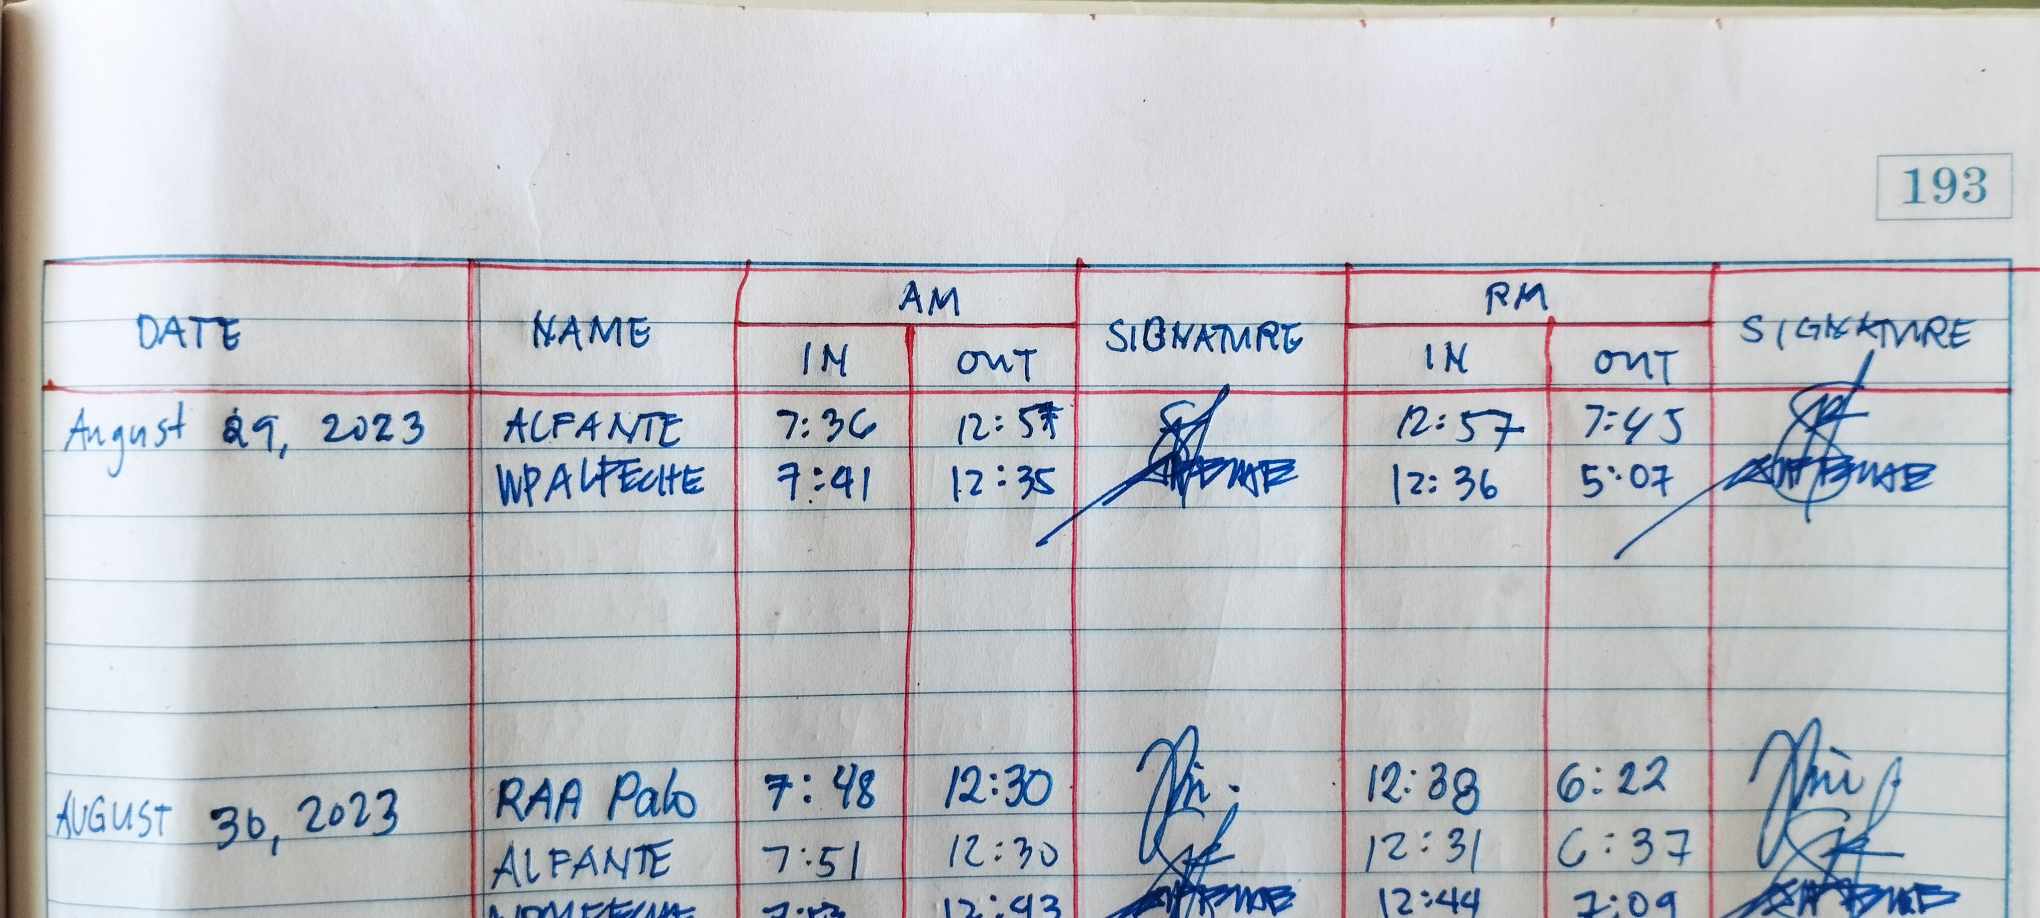 193
DATE NAME AM SIGNATURE PM SIGNATURE
IN OUT IN OUT
August 29, 2023 ALFANTE 7:36 12:57 12:57 7:45
WPALPECHE 7:41 12:35 12:36 5:07
AUGUST 30, 2023 RAA Palo 7:48 12:30 12:38 6:22
ALFANTE 7:51 12:30 12:31 6:37
12:43 12:44 7:09